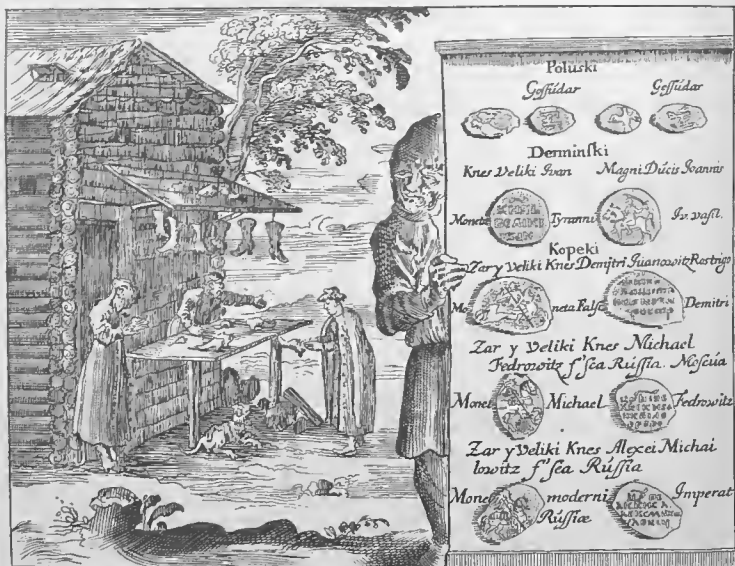 Poluski
Gossúdar Gossúdar
Derminski
Knes Veliki Ivan Magni Dúcis Ioannis
Moneta Tyranni Iv. vasl.
Kopeki
Zar y Veliki Knes Demitri Iuanowitz Rostrigo
Mo neta Falsa Demitri
Zar y Veliki Knes Michael
Fedrowitz f'sea Rússia. Moscúa
Monet Michael Fedrowitz
Zar y Veliki Knes Alexei Michai
lowitz f'sea Rússia
Mone moderni Imperat
Rússiæ